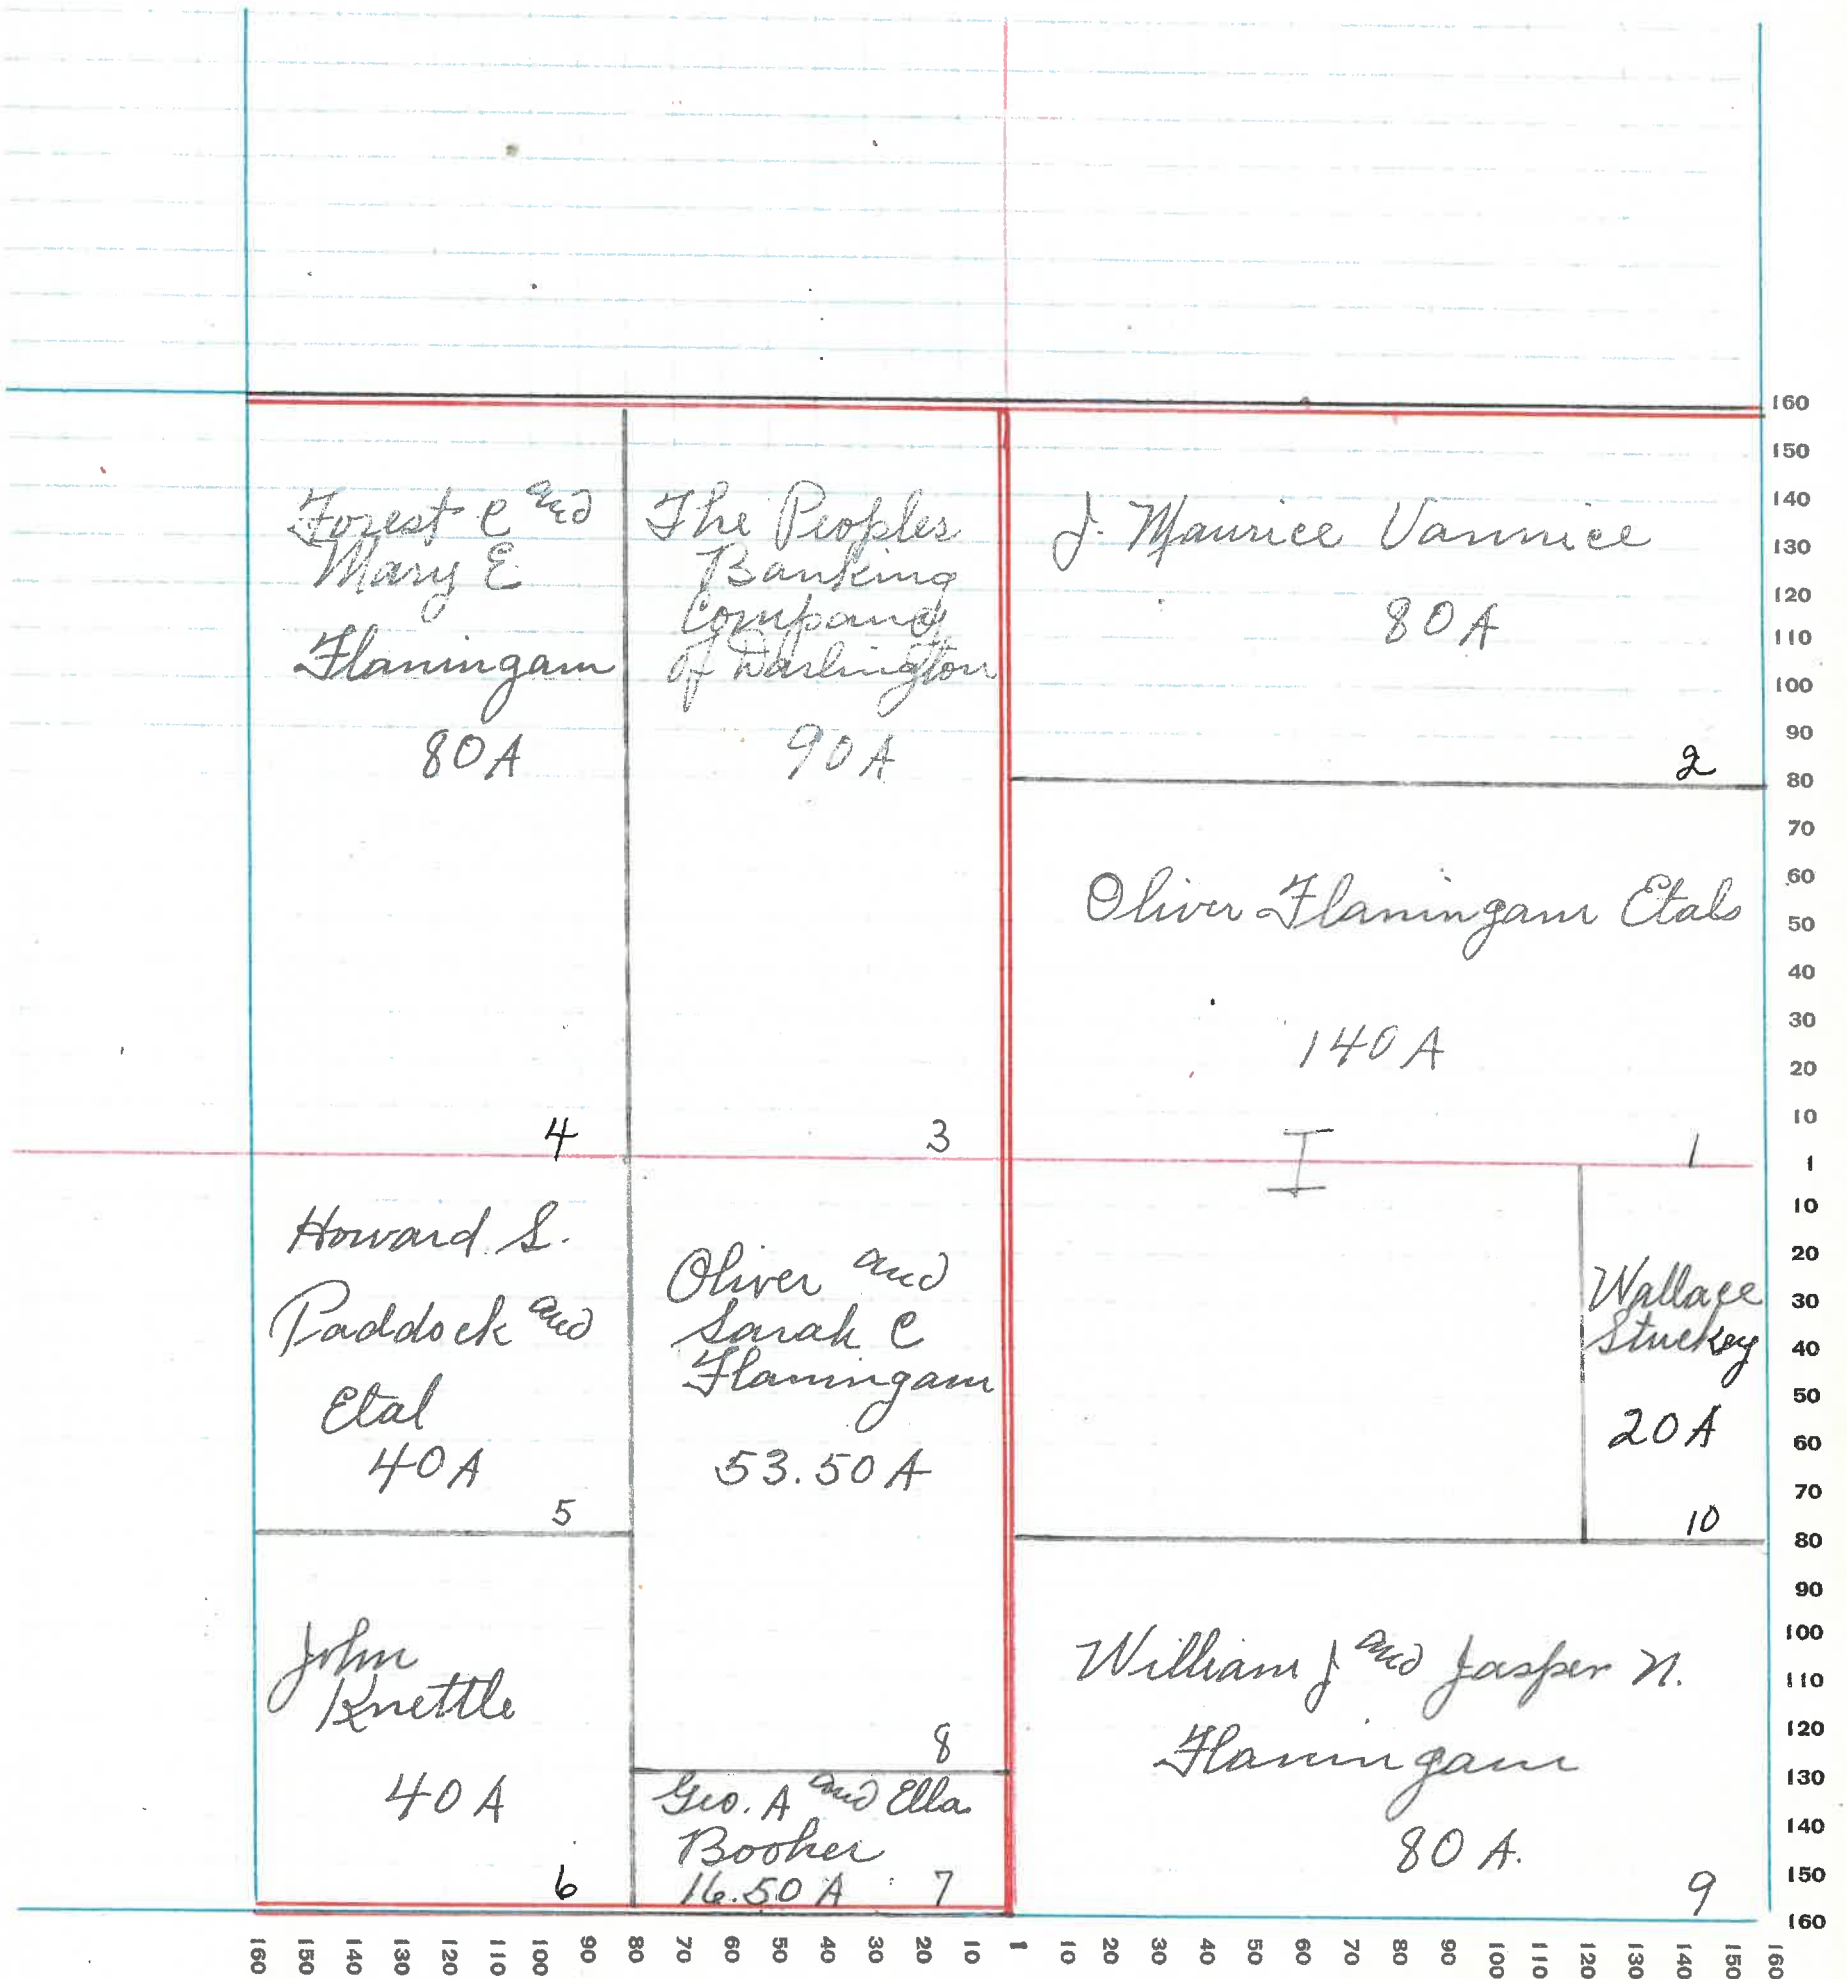 Forest C and
Mary E
Flaningam
80 A
4
The Peoples
Banking
Company
of Darlington
90 A
3
J. Maurice Vannice
80 A
2
Oliver Flaningam Etals
140 A
I
1
Howard S.
Paddock and
Etal
40 A
5
Oliver and
Sarah C
Flaningam
53.50 A
8
Wallace
Stuckey
20 A
10
John
Knettle
40 A
6
Geo. A and Ella
Booher
16.50 A
7
William J and Jasper N.
Flaningam
80 A.
9
160
150
140
130
120
110
100
90
80
70
60
50
40
30
20
10
1
10
20
30
40
50
60
70
80
90
100
110
120
130
140
150
160
160 150 140 130 120 110 100 90 80 70 60 50 40 30 20 10 1 10 20 30 40 50 60 70 80 90 100 110 120 130 140 150 160